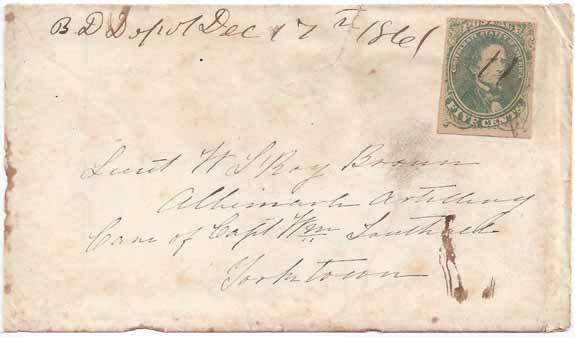 B D Depot Dec 17th 1861
POSTAGE
CONFEDERATE STATES OF AMERICA
FIVE CENTS
Lieut Wm LeRoy Broun
Albemarle Artillery
Care of Capt Wm Southall
Yorktown